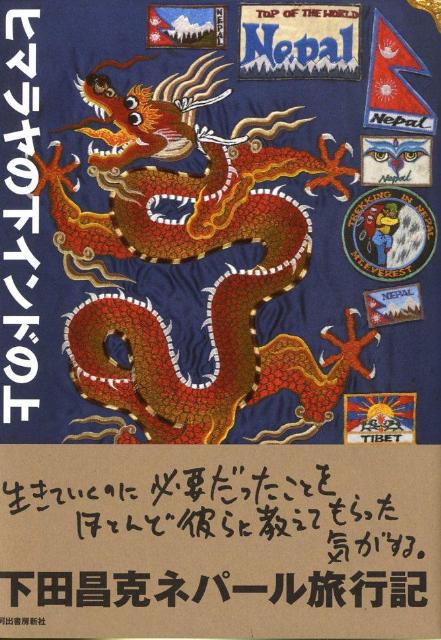 ヒマラヤの下インドの上
NEPAL
TOP OF THE WORLD
Nepal
Nepal
Nepal
TREKKING IN NEPAL
MT.EVEREST
NEPAL
TIBET
生きていくのに必要だったことを
ほとんど彼らに教えてもらった
気がする。
下田昌克ネパール旅行記
河出書房新社